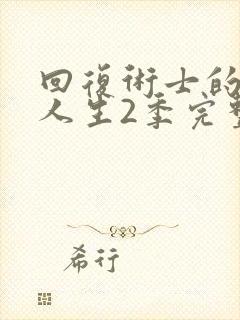 回復術士的
人生2季完整
希行